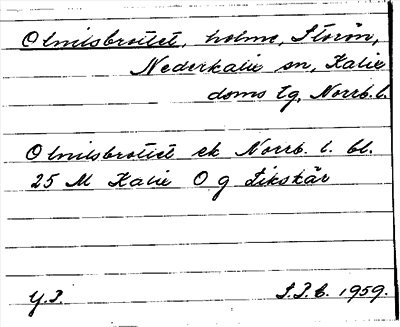 Olnilsbrotet, holme, Storön,
Nederkalix sn, Kalix
doms tg, Norrb. l.
Olnilsbrotet ek Norrb. l. bl.
25 M Kalix O g Likskär
G.P. S.I.B. 1959.